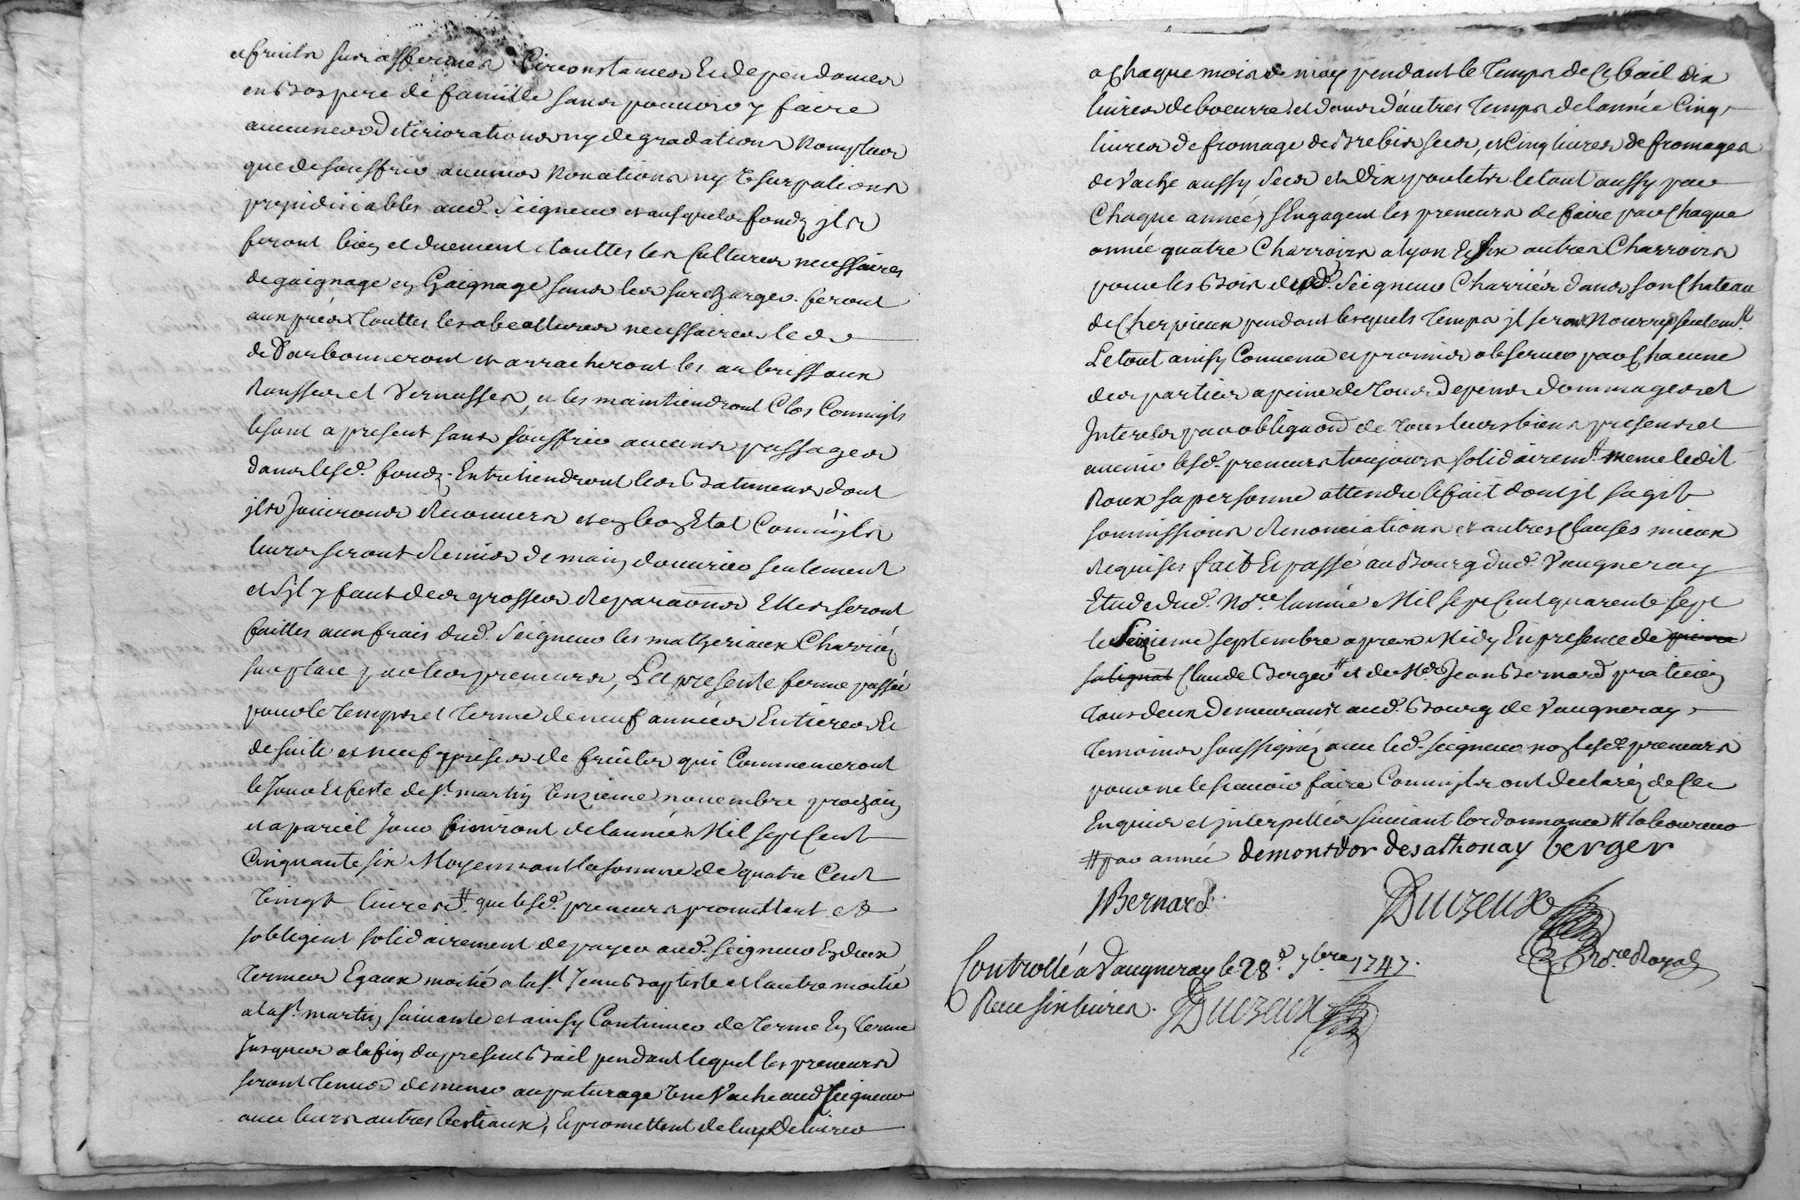 et fruits sus affermés Circonstances Et dependances
en bos pere de famille sans pouvoir y faire
aucunes deteriorations ny degradations Nomplus
que de souffrir aucunes Novations ny Usurpations
prejudiciables aud. Seigneur et ausquels fondz jls
feront bien et duement touttes les Cultures necessaires
de gaignage en Gaignage sans les surcharger. feront
aux préz touttes les abeallures necessaires les
et arracheront les arbrissaux
Rousses et Vernasses, et les maintiendront Clos Comm'jls
le sont a present sans souffrir aucuns passages
dans lesd. fondz. Entretiendront les Batiments dont
jls Jouiront Recouverts et en bon Etat Comm'jls
leurs seront Remis de main d'ouvrier seulement
et s'jl y faut des grosses Reparaons Elles seront
faittes aux frais dud. Seigneur les matheriaux Charriéz
sur place par les preneurs, La presente ferme passée
pour le temps et terme de neuf années Entieres Et
de suite et neuf prises de fruits qui Commenceront
le Jour Et feste de st martin Unzieme novembre prochain
et a pareil Jour finiront de l'année Mil sept Cent
Cinquante six Moyennant la somme de quatre Cent
vingt livres # que lesd. preneurs promettent et
s'obligent solidairement de payer aud. Seigneur En deux
termes Egaux moitié a la st Jean Baptiste et l'autre moitié
a la st martin suivante et ainsy Continuer de terme En terme
Jusques a la fin du present Bail pendant lequel les preneurs
seront tenus de mener au paturage Une Vache aud Seigneur
avec leurs autres bestiaux, Et promettent de luy delivrer
a Chaque mois de may pendant le temps de Ce bail dix
livres de boeurre et dans d'autres temps de lannée Cinq
livres de fromage de Brebis secs, et Cinq livres de fromages
de Vache aussy secs et dix poulets le tout aussy par
Chaque année, s'Engagent les preneurs de faire par Chaque
année quatre Charrois a lyon Et six autres Charrois
pour les Bois dud. Seigneur Charriés dans son Chateau
de Cherpieux pendant lesquels temps jl seront Nourry seulemt.
Le tout ainsy Convenu et promis observer par Chacune
des parties a peine de tous depens dommages et
Interets par obligaon de tous leurs biens presens et
avenir lesd. preneurs toujours solidairemt. meme ledit
Roux sa personne attendu le fait dont jl s'agit
sommissions Renonciations et autres Clauses mieux
Requises fait Et passé au Bourg dud. Vaugneray
Etude dud. Nore. l'année Mil sept Cent quarente sept
le Seizieme septembre apres Midy En presence de
Claude Berger # et de Me Jean Bernard praticien
tous deux demeurans aud. Bourg de Vaugneray
temoins soussignéz avec led. seigneur non lesd. preneurs
pour ne le scavoir faire Comm'jls ont declaréz de Ce
Enquis et jnterpellés suivant l'ordonnance # laboureur
# par année demontdor desathonay berger
JBernard Duizeux
Nre. Royal
Controllé a Vaugneray le 28e. 7bre 1747.
Receu six livres. Duizeux